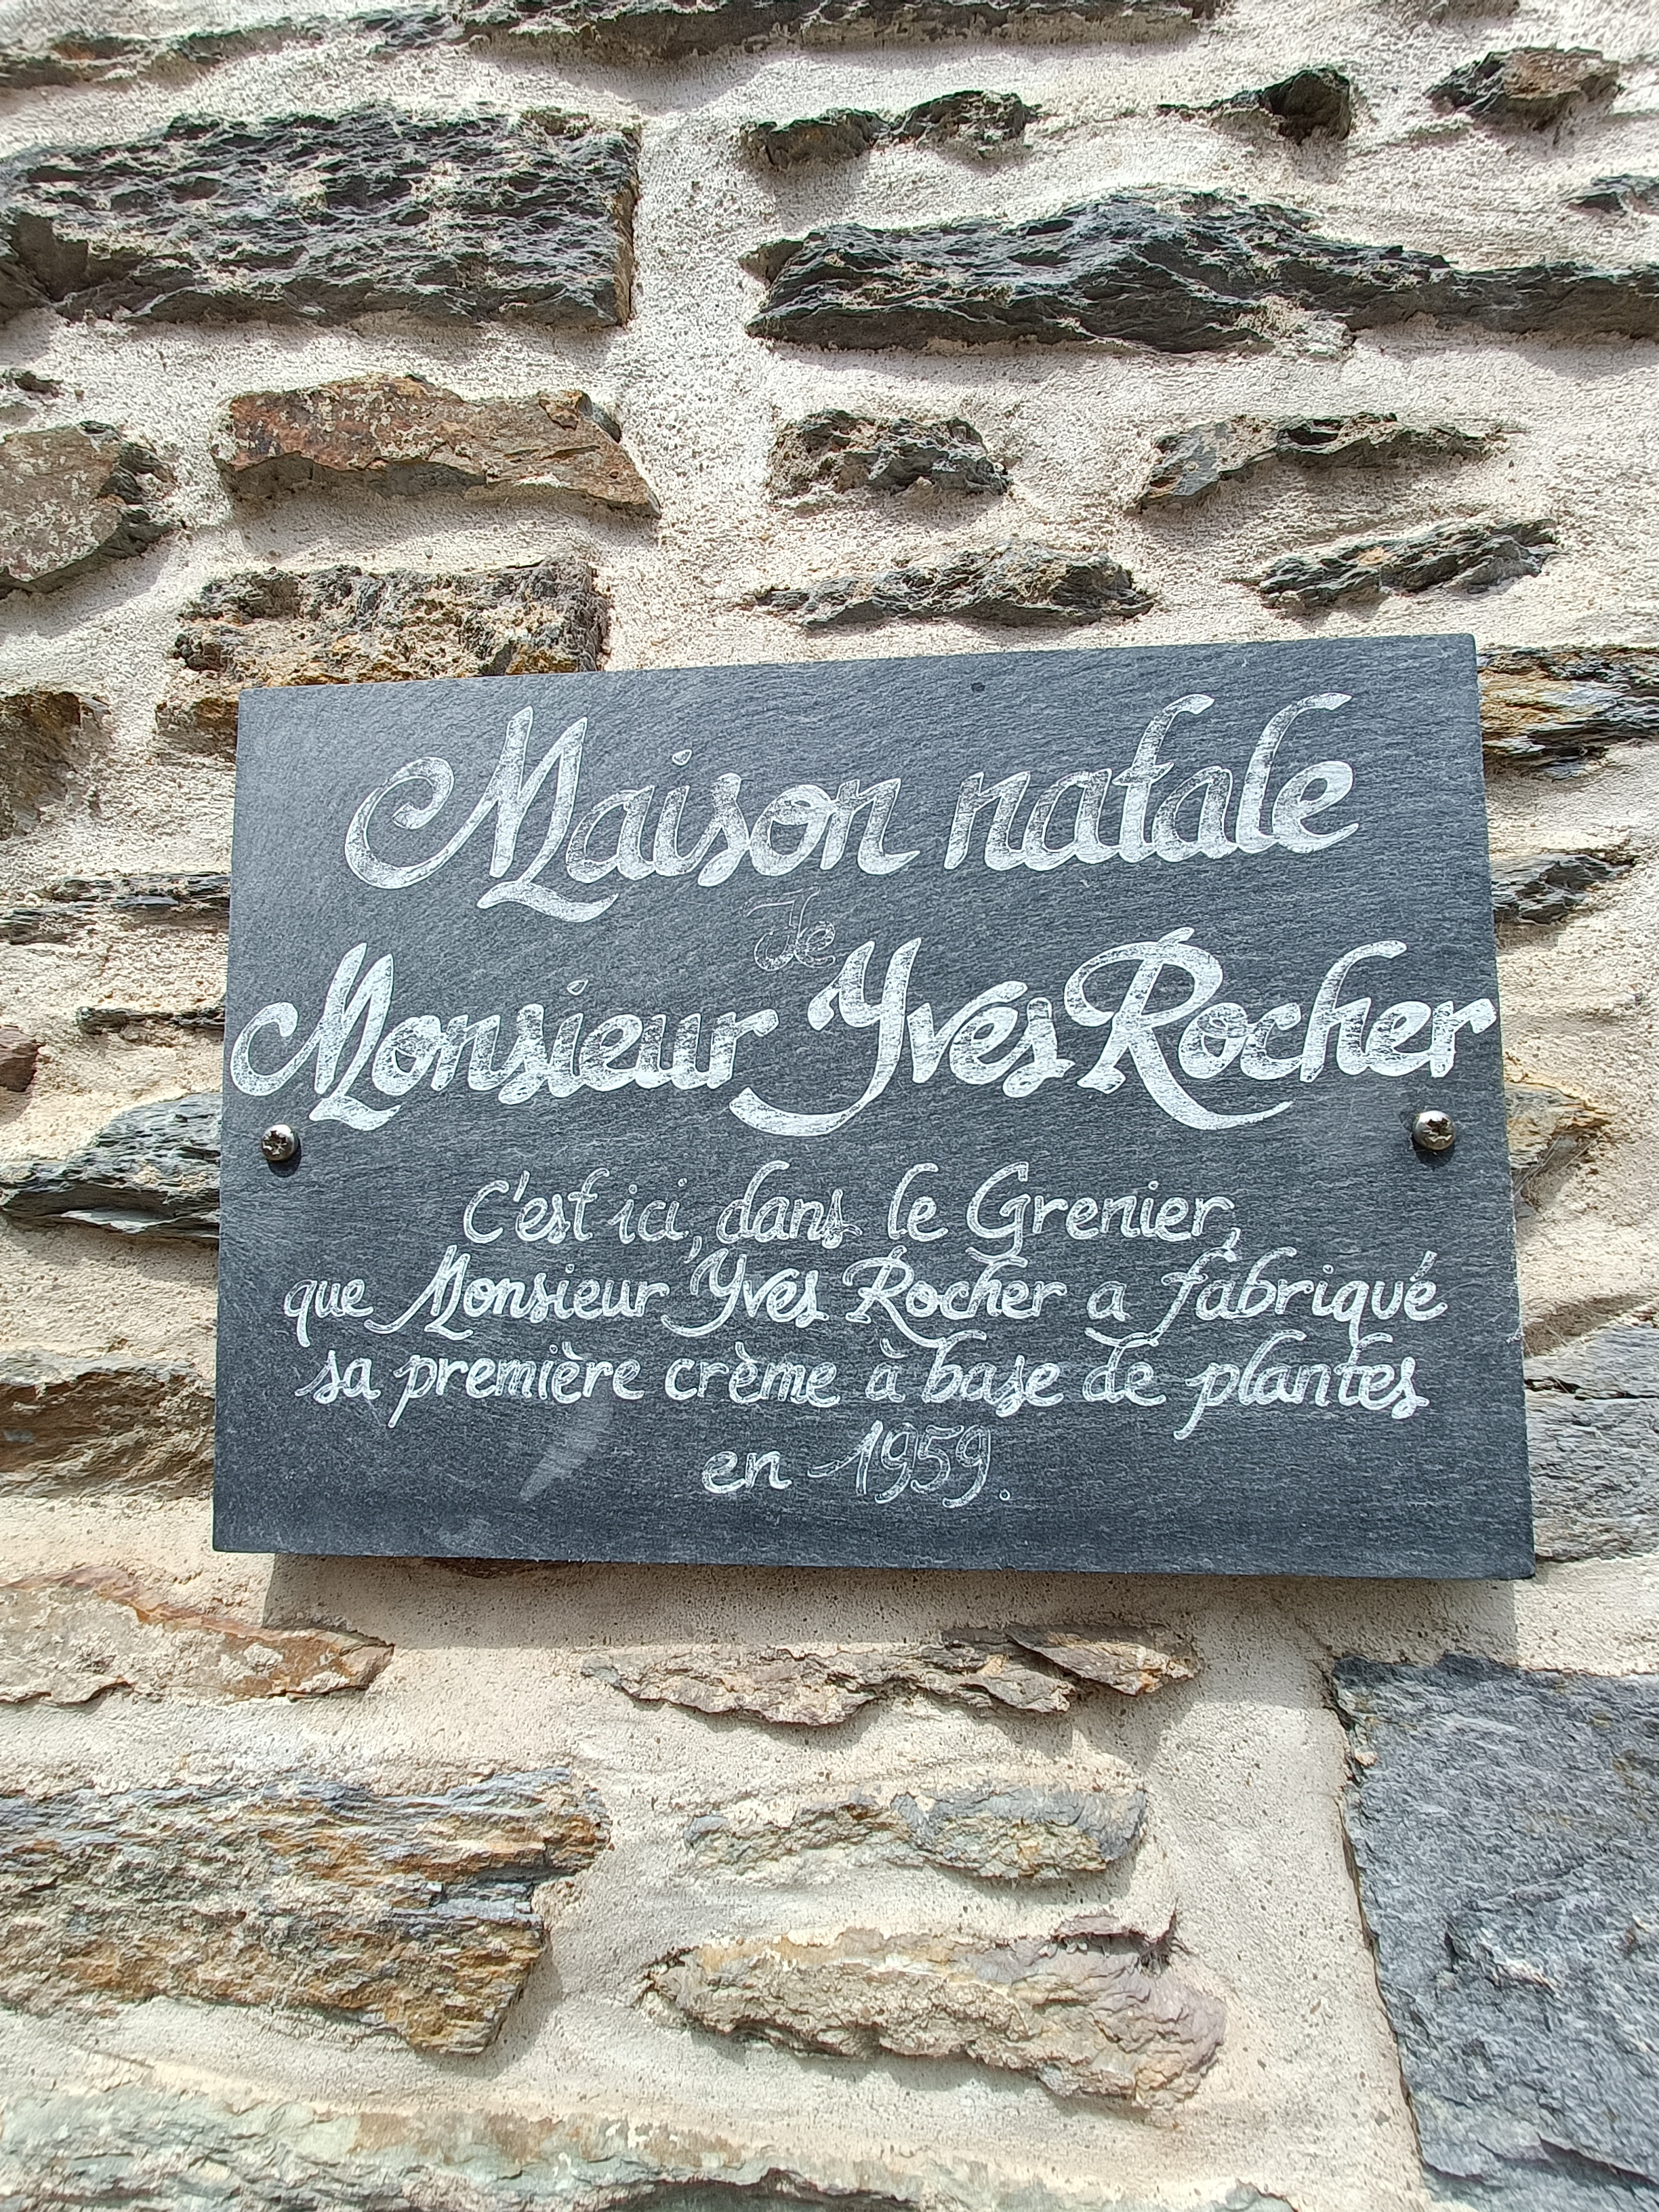 Maison natale
de
Monsieur Yves Rocher
C'est ici, dans le Grenier,
que Monsieur Yves Rocher a fabriqué
sa première crème à base de plantes
en 1959.